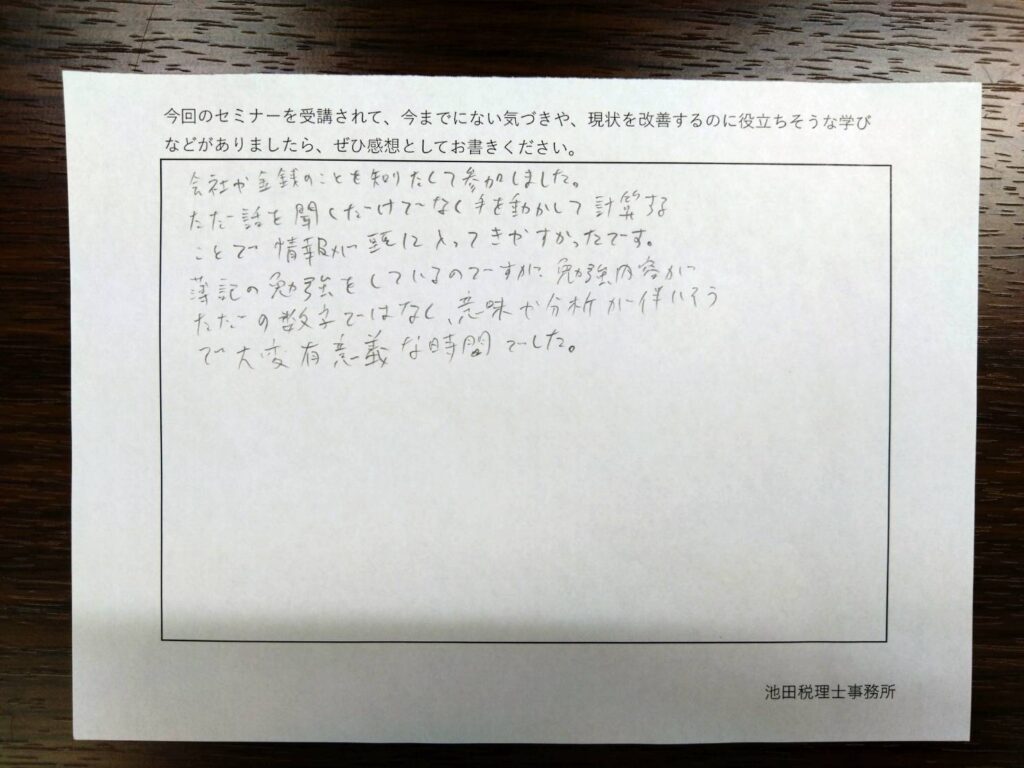 今回のセミナーを受講されて、今までにない気づきや、現状を改善するのに役立ちそうな学び
などがありましたら、ぜひ感想としてお書きください。
会社や金銭のことを知りたくて参加しました。
ただ話を聞くだけでなく手を動かして計算する
ことで情報が頭に入ってきやすかったです。
簿記の勉強をしているのですが、勉強内容が
ただの数字ではなく、意味や分析が伴いそう
で大変有意義な時間でした。
池田税理士事務所